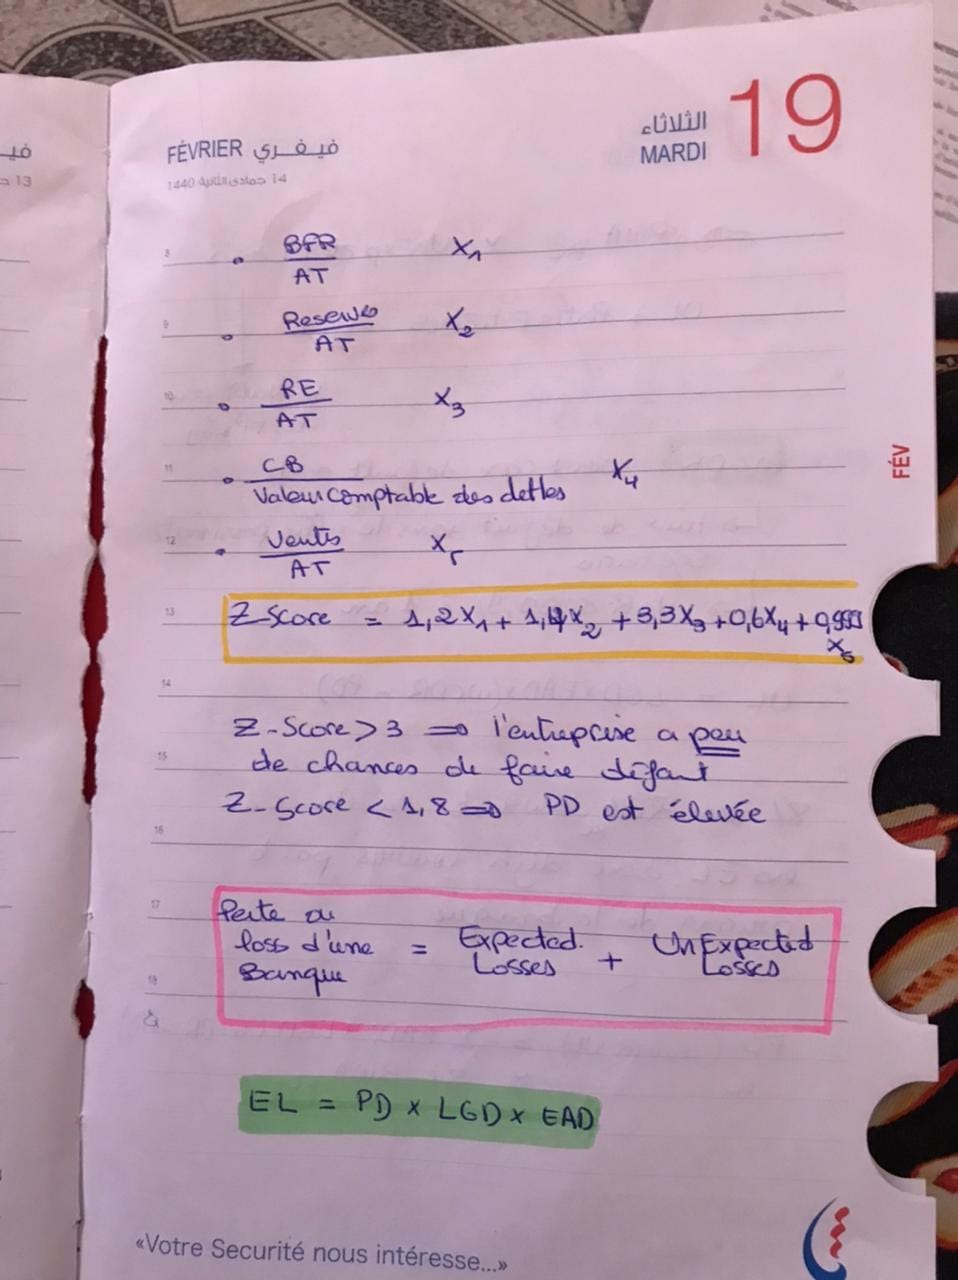 FÉVRIER فيفري
14 جمادى الثانية 1440
الثلاثاء
MARDI
19
• BFR / AT X1
• Reserves / AT X2
• RE / AT X3
• CB / Valeur comptable des dettes X4
• Ventes / AT X5
Z-Score = 1,2X1 + 1,4X2 + 3,3X3 + 0,6X4 + 0,999
X5
Z-Score > 3 ⇒ l'entreprise a peu
de chances de faire défaut
Z-Score < 1,8 ⇒ PD est élevée
Perte ou
loss d'une
Banque
= Expected
Losses
+ UnExpected
Losses
EL = PD x LGD x EAD
FÉV
8
9
10
11
12
13
14
15
16
17
18
«Votre Securité nous intéresse...»